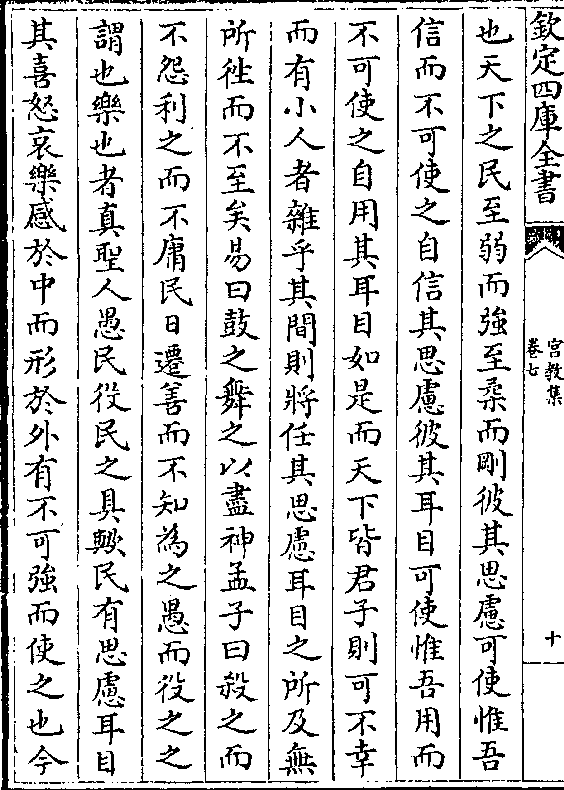 欽定四庫全書
宫教集
卷七
十
也天下之民至弱而強至柔而剛彼其思慮可使惟吾
信而不可使之自信其思慮彼其耳目可使惟吾用而
不可使之自用其耳目如是而天下皆君子則可不幸
而有小人者雜乎其間則將任其思慮耳目之所及無
所徃而不至矣易曰鼓之舞之以盡神孟子曰殺之而
不怨利之而不庸民日遷善而不知為之愚而役之之
謂也樂也者真聖人愚民役民之具歟民有思慮耳目
其喜怒哀樂感於中而形於外有不可強而使之也今